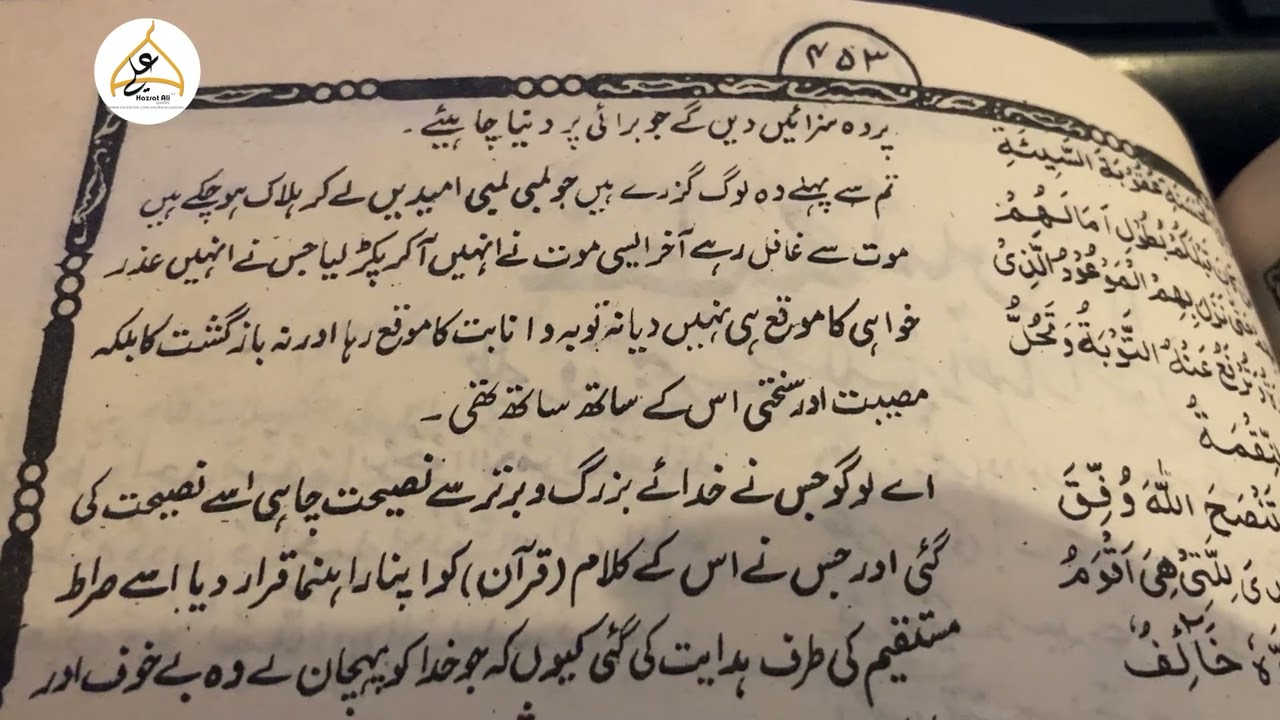 ۴۵۳
Hazrat Ali
پر وہ سزائیں دیں گے جو برائی پر دنیا چاہیئے۔
تم سے پہلے وہ لوگ گزرے ہیں جو لمبی لمبی امیدیں لے کر ہلاک ہو چکے ہیں
موت سے غافل رہے آخر ایسی موت نے انہیں آ کر پکڑ لیا جس نے انہیں عذر
خواہی کا موقع ہی نہیں دیا نہ توبہ و انابت کا موقع رہا اور نہ بازگشت کا بلکہ
مصیبت اور سختی اس کے ساتھ ساتھ تھی۔
اے لوگو جس نے خدائے بزرگ و برتر سے نصیحت چاہی اسے نصیحت کی
گئی اور جس نے اس کے کلام (قرآن) کو اپنا راہنما قرار دیا اسے صراط
مستقیم کی طرف ہدایت کی گئی کیوں کہ جو خدا کو پہچان لے وہ بے خوف اور
عُقُوْبَةَ السَّيِّئَةِ
بِطُوْلِ اٰمَالِهِمْ
نَزَلَ بِهِمُ الْمَوْعُوْدُ الَّذِىْ
تُرْفَعُ عَنْهُ التَّوْبَةُ وَتَحُلُّ
اللّٰهَ وُفِّقَ
لِلَّتِىْ هِىَ اَقْوَمُ
خَائِفٌ